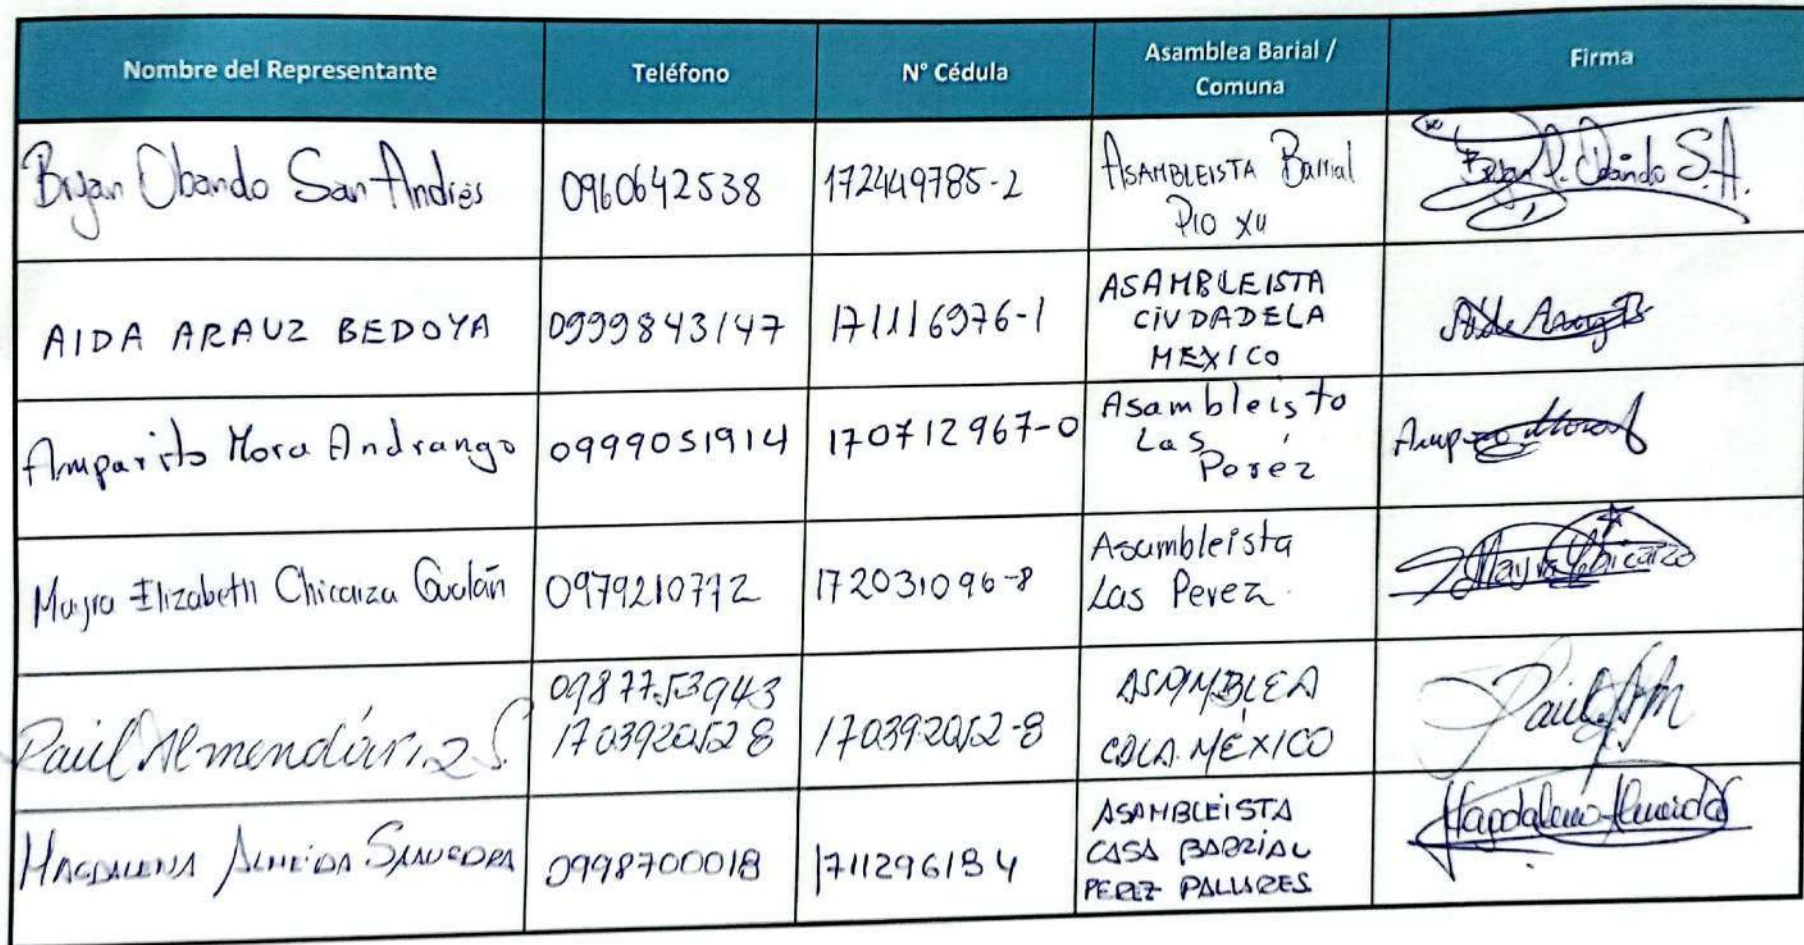 Nombre del Representante
Teléfono
N° Cédula
Asamblea Barial /
Comuna
Firma
Bryan Obando San Andrés
0960642538
172449785-2
ASAMBLEISTA Barrial
PIO XII
Bryan P. Obando S.A.
AIDA ARAUZ BEDOYA
0999843147
171116976-1
ASAMBLEISTA
CIUDADELA
MEXICO
Amparito Mora Andrango
0999051914
170712967-0
Asambleista
Las
Peréz
Mayra Elizabeth Chicaiza Gualán
0979210772
172031096-8
Asambleista
Las Perez
Mayra Chicaiza
Paúl Almendáriz S.
0987753943
1703920528
170392052-8
ASAMBLEA
CDLA. MÉXICO
MAGDALENA ALMEIDA SAAVEDRA
0998700018
ASAMBLEISTA
CASA BARRIAL
PEREZ PALLARES
Magdalena Almeida